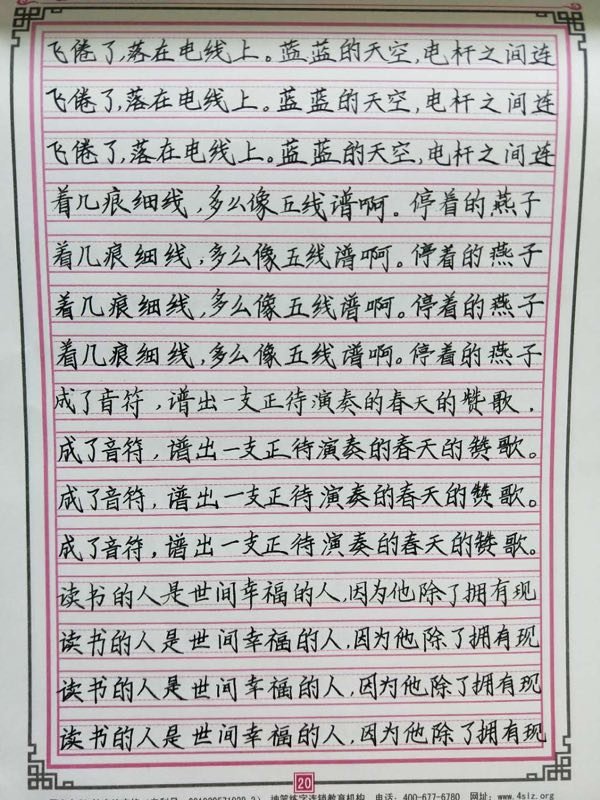 飞倦了,落在电线上。蓝蓝的天空,电杆之间连
飞倦了,落在电线上。蓝蓝的天空,电杆之间连
飞倦了,落在电线上。蓝蓝的天空,电杆之间连
着几痕细线,多么像五线谱啊。停着的燕子
着几痕细线,多么像五线谱啊。停着的燕子
着几痕细线,多么像五线谱啊。停着的燕子
着几痕细线,多么像五线谱啊。停着的燕子
成了音符,谱出一支正待演奏的春天的赞歌.
成了音符,谱出一支正待演奏的春天的赞歌。
成了音符,谱出一支正待演奏的春天的赞歌。
成了音符,谱出一支正待演奏的春天的赞歌。
读书的人是世间幸福的人,因为他除了拥有现
读书的人是世间幸福的人,因为他除了拥有现
读书的人是世间幸福的人,因为他除了拥有现
读书的人是世间幸福的人,因为他除了拥有现
20
练字连锁教育机构 电话: 400-677-6780 网址: www.4siz.org